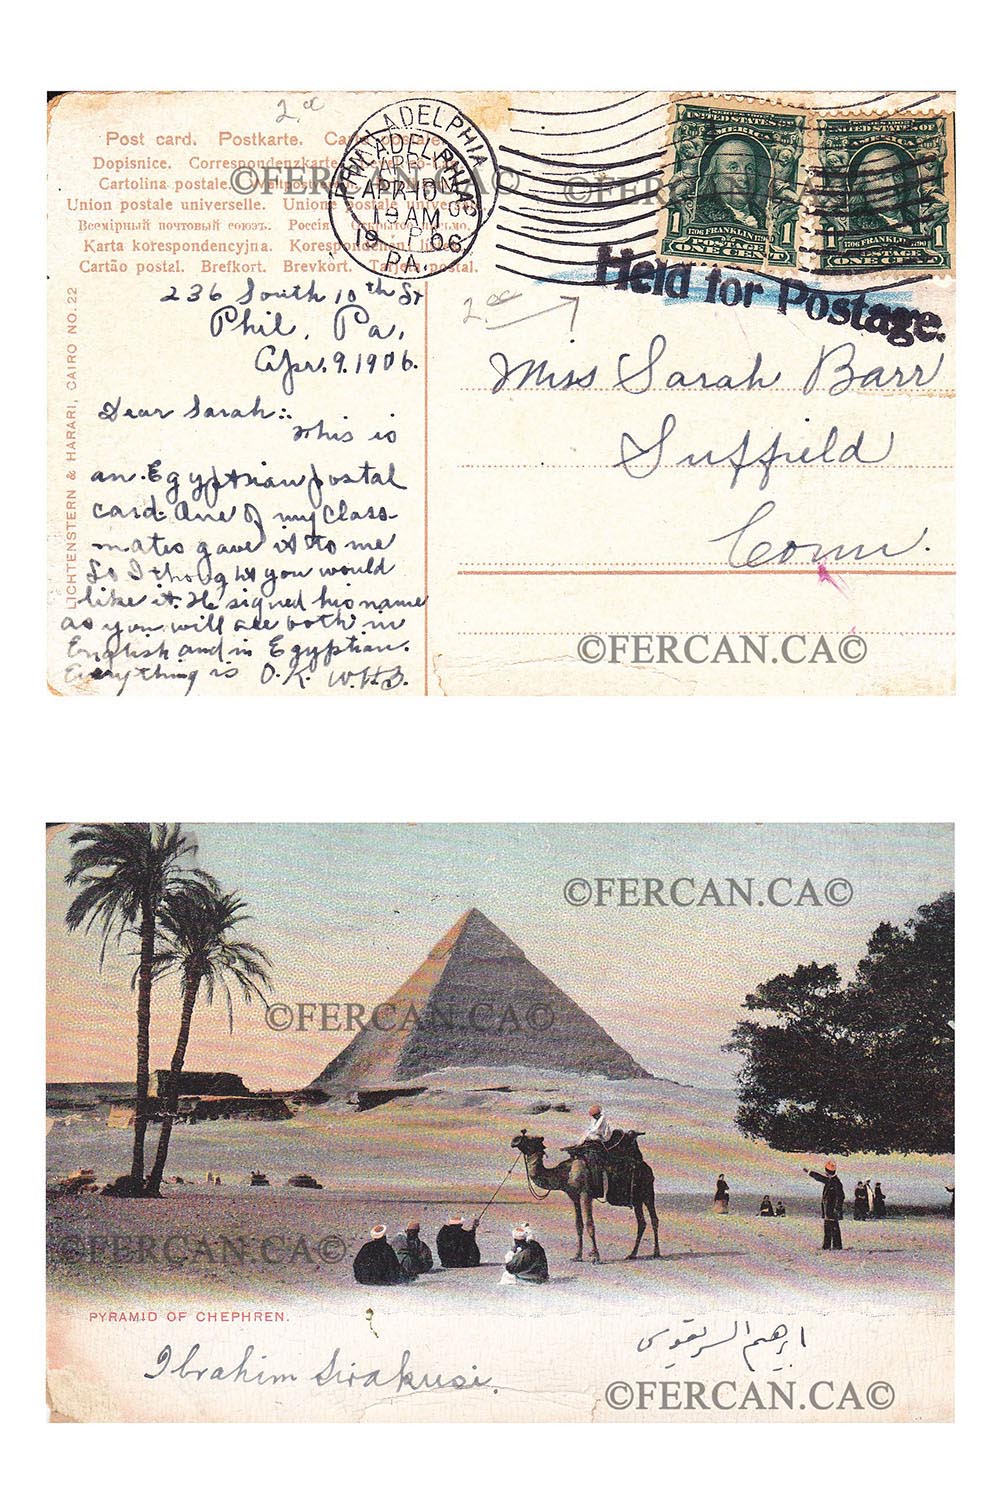 2.
Post card. Postkarte. Carte postale.
Dopisnice. Correspondenzkarte.
Cartolina postale. Weltpostverein.
Union postale universelle. Unione postale universale.
Всемірный почтовый союзъ. Россія. Открытое письмо.
Karta korespondencyjna. Korespondenční lístek.
Cartão postal. Brefkort. Brevkort. Tarjeta postal.
PHILADELPHIA
APR 10
PA.
UNITED STATES OF AMERICA
1 1
1706 FRANKLIN 1790
POSTAGE
ONE CENT
UNITED STATES OF AMERICA
1 1
1706 FRANKLIN 1790
POSTAGE
ONE CENT
Held for Postage.
LICHTENSTERN & HARARI, CAIRO NO. 22
236 South 10th St
Phil. Pa.
Apr. 9. 1906.
Dear Sarah::
This is
an Egyptian postal
card. One of my class-
mates gave it to me
So I thought you would
like it. He signed his name
as you will see both in
English and in Egyptian.
Everything is O.K. W.H.B.
Miss Sarah Barr
Suffield
Conn.
©FERCAN.CA©
©FERCAN.CA©
©FERCAN.CA©
©FERCAN.CA©
©FERCAN.CA©
©FERCAN.CA©
PYRAMID OF CHEPHREN.
ابرهيم السريقوسى
Ibrahim Sirakusi.
©FERCAN.CA©